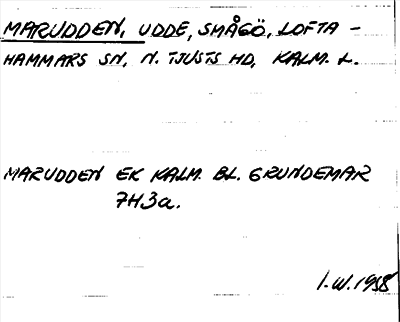 MARUDDEN, UDDE, SMÅGÖ, LOFTA-
HAMMARS SN, N. TJUSTS HD, KALM. L.
MARUDDEN EK KALM. BL. GRUNDEMAR
7H3a.
I.W. 1958